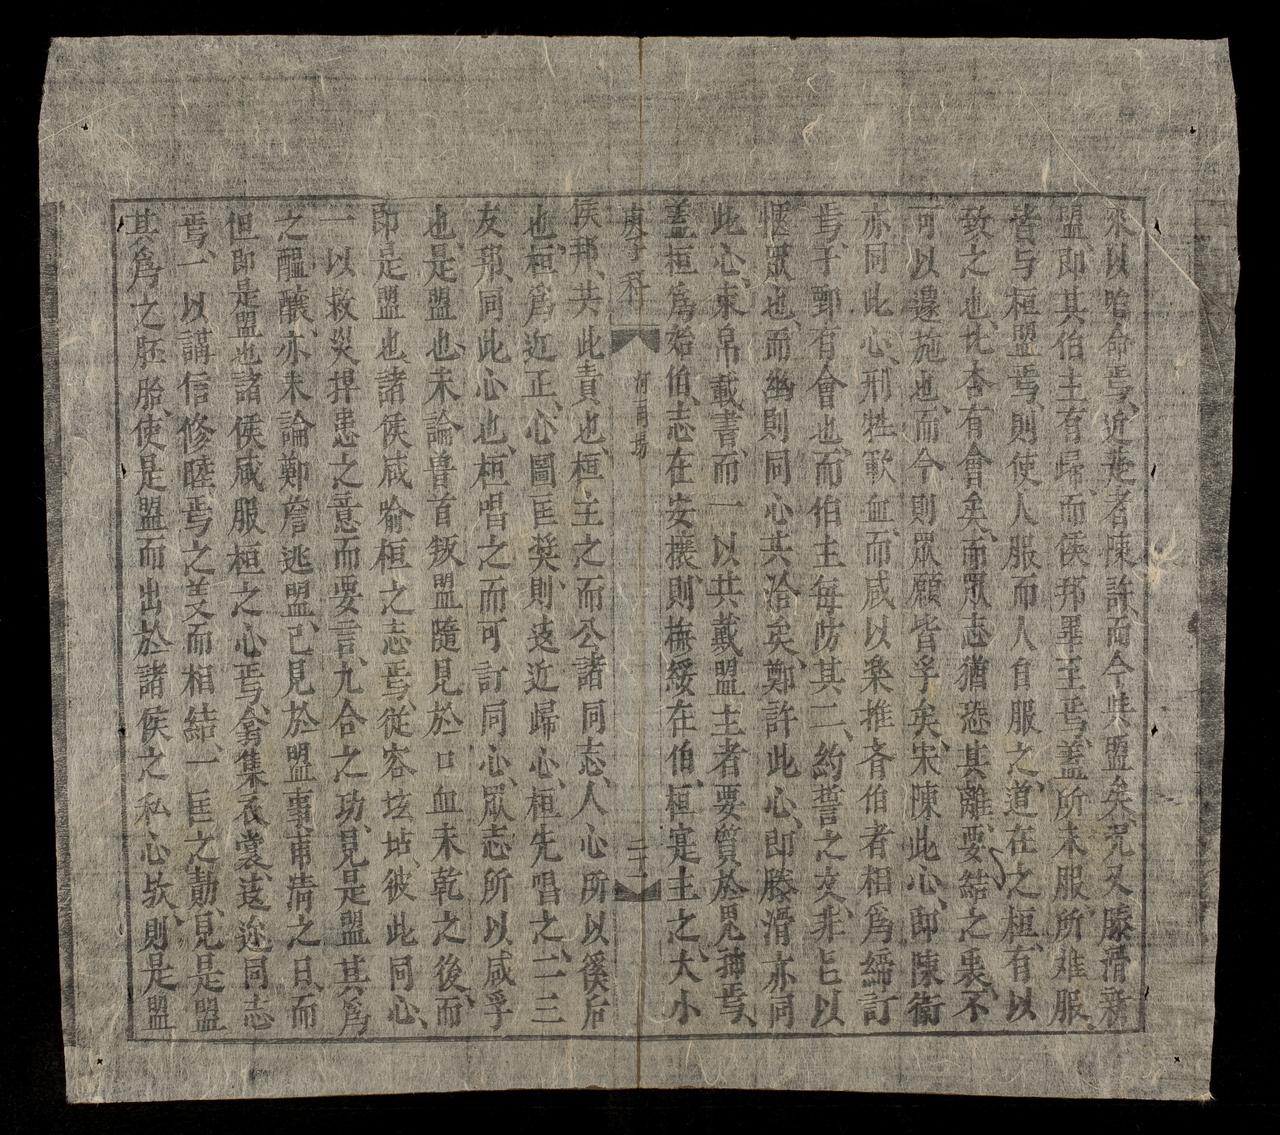 來以哈命焉、近楚者陳許、而今與盟矣、況又滕滑新
盟、即其伯主有歸、而侯邦畢至焉、蓋所未服、所难服
皆与桓盟焉、則使人服而人自服之、道在之桓、有以
致之也、比杏有會矣、而眾志猶恐其離、要結之裏、不
可以遽施也、而今則眾願皆孚矣、宋陳此心、即陳衛
亦同此心、刑牲歃血、而咸以楽推斉伯者相爲締訂
焉、于鄄有會也、而伯主每防其二、約誓之文、非足以
愜眾也、而幽則同心共洽矣、鄭許此心、即滕滑亦同
此心、束帛載書、而一以共戴盟主者要質於鬼神焉、
蓋桓爲始伯、志在安攘、則撫綏在伯、桓寔主之、大小
庚子科 河南場 二十二
侯邦、共此責也、桓主之而公諸同志、人心所以徯后
也、桓爲近正、心圖匡獎、則遠近歸心、桓先唱之、二三
友邦、同此心也、桓唱之而可訂同心、眾志所以咸孚
也、是盟也未論魯首叛盟隨見於口血未乾之後、而
即是盟也諸侯咸喻桓之志焉、從容坛坫、彼此同心、
一以救災捍患之意而要言、九合之功、見是盟其爲
之醞釀、亦未論鄭詹逃盟、已見於盟事甫清之日、而
但即是盟也諸侯咸服桓之心焉、翕集衣裳、遠迩同志
焉、一以講信修睦焉之義而相結、一匡之勣、見是盟
其爲之胚胎、使是盟而出於諸侯之私心欤、則是盟